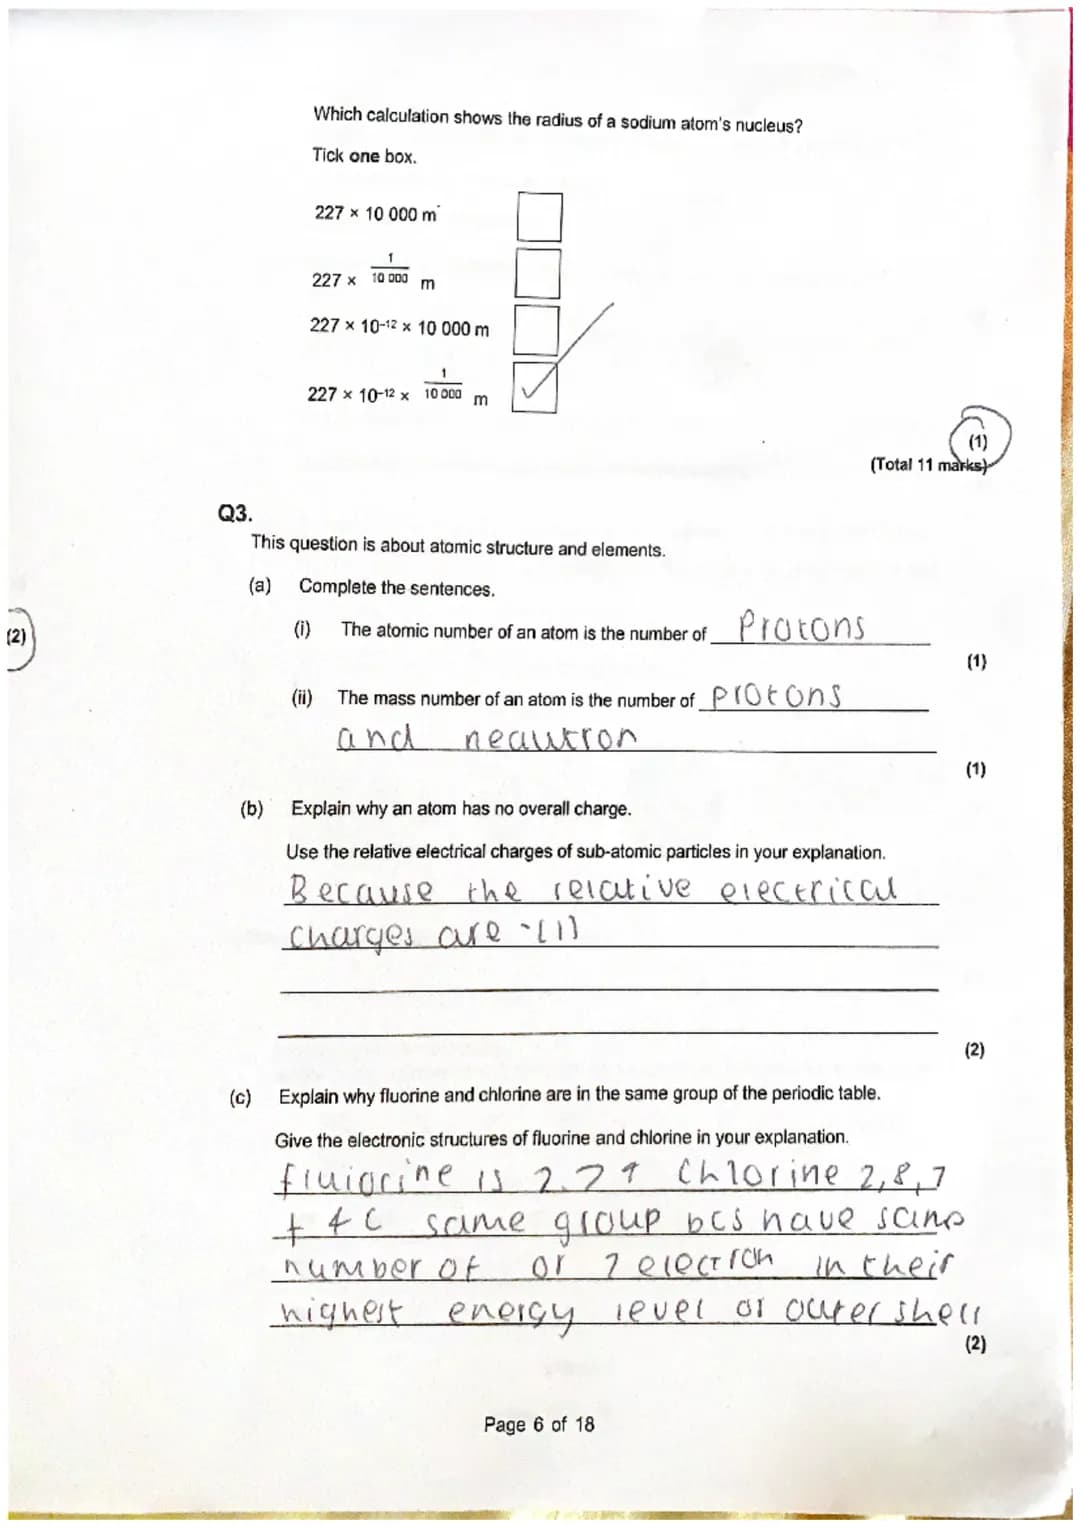 Which calculation shows the radius of a sodium atom's nucleus?
Tick one box.
227 × 10 000 m
227 × 1/10 000 m
227 × 10-12 × 10 000 m
227 × 10-12 × 1/10 000 m
(1)
(Total 11 marks)
Q3.
This question is about atomic structure and elements.
(a) Complete the sentences.
(2)
(i) The atomic number of an atom is the number of Protons
(1)
(ii) The mass number of an atom is the number of protons
and neautron
(1)
(b) Explain why an atom has no overall charge.
Use the relative electrical charges of sub-atomic particles in your explanation.
Because the relative electrical
charges are -(1)
(2)
(c) Explain why fluorine and chlorine are in the same group of the periodic table.
Give the electronic structures of fluorine and chlorine in your explanation.
fluiorine is 2.7 Chlorine 2,8,7
same group bcs have same
number of or 7 electron in their
highest energy level or outer shell
(2)
Page 6 of 18